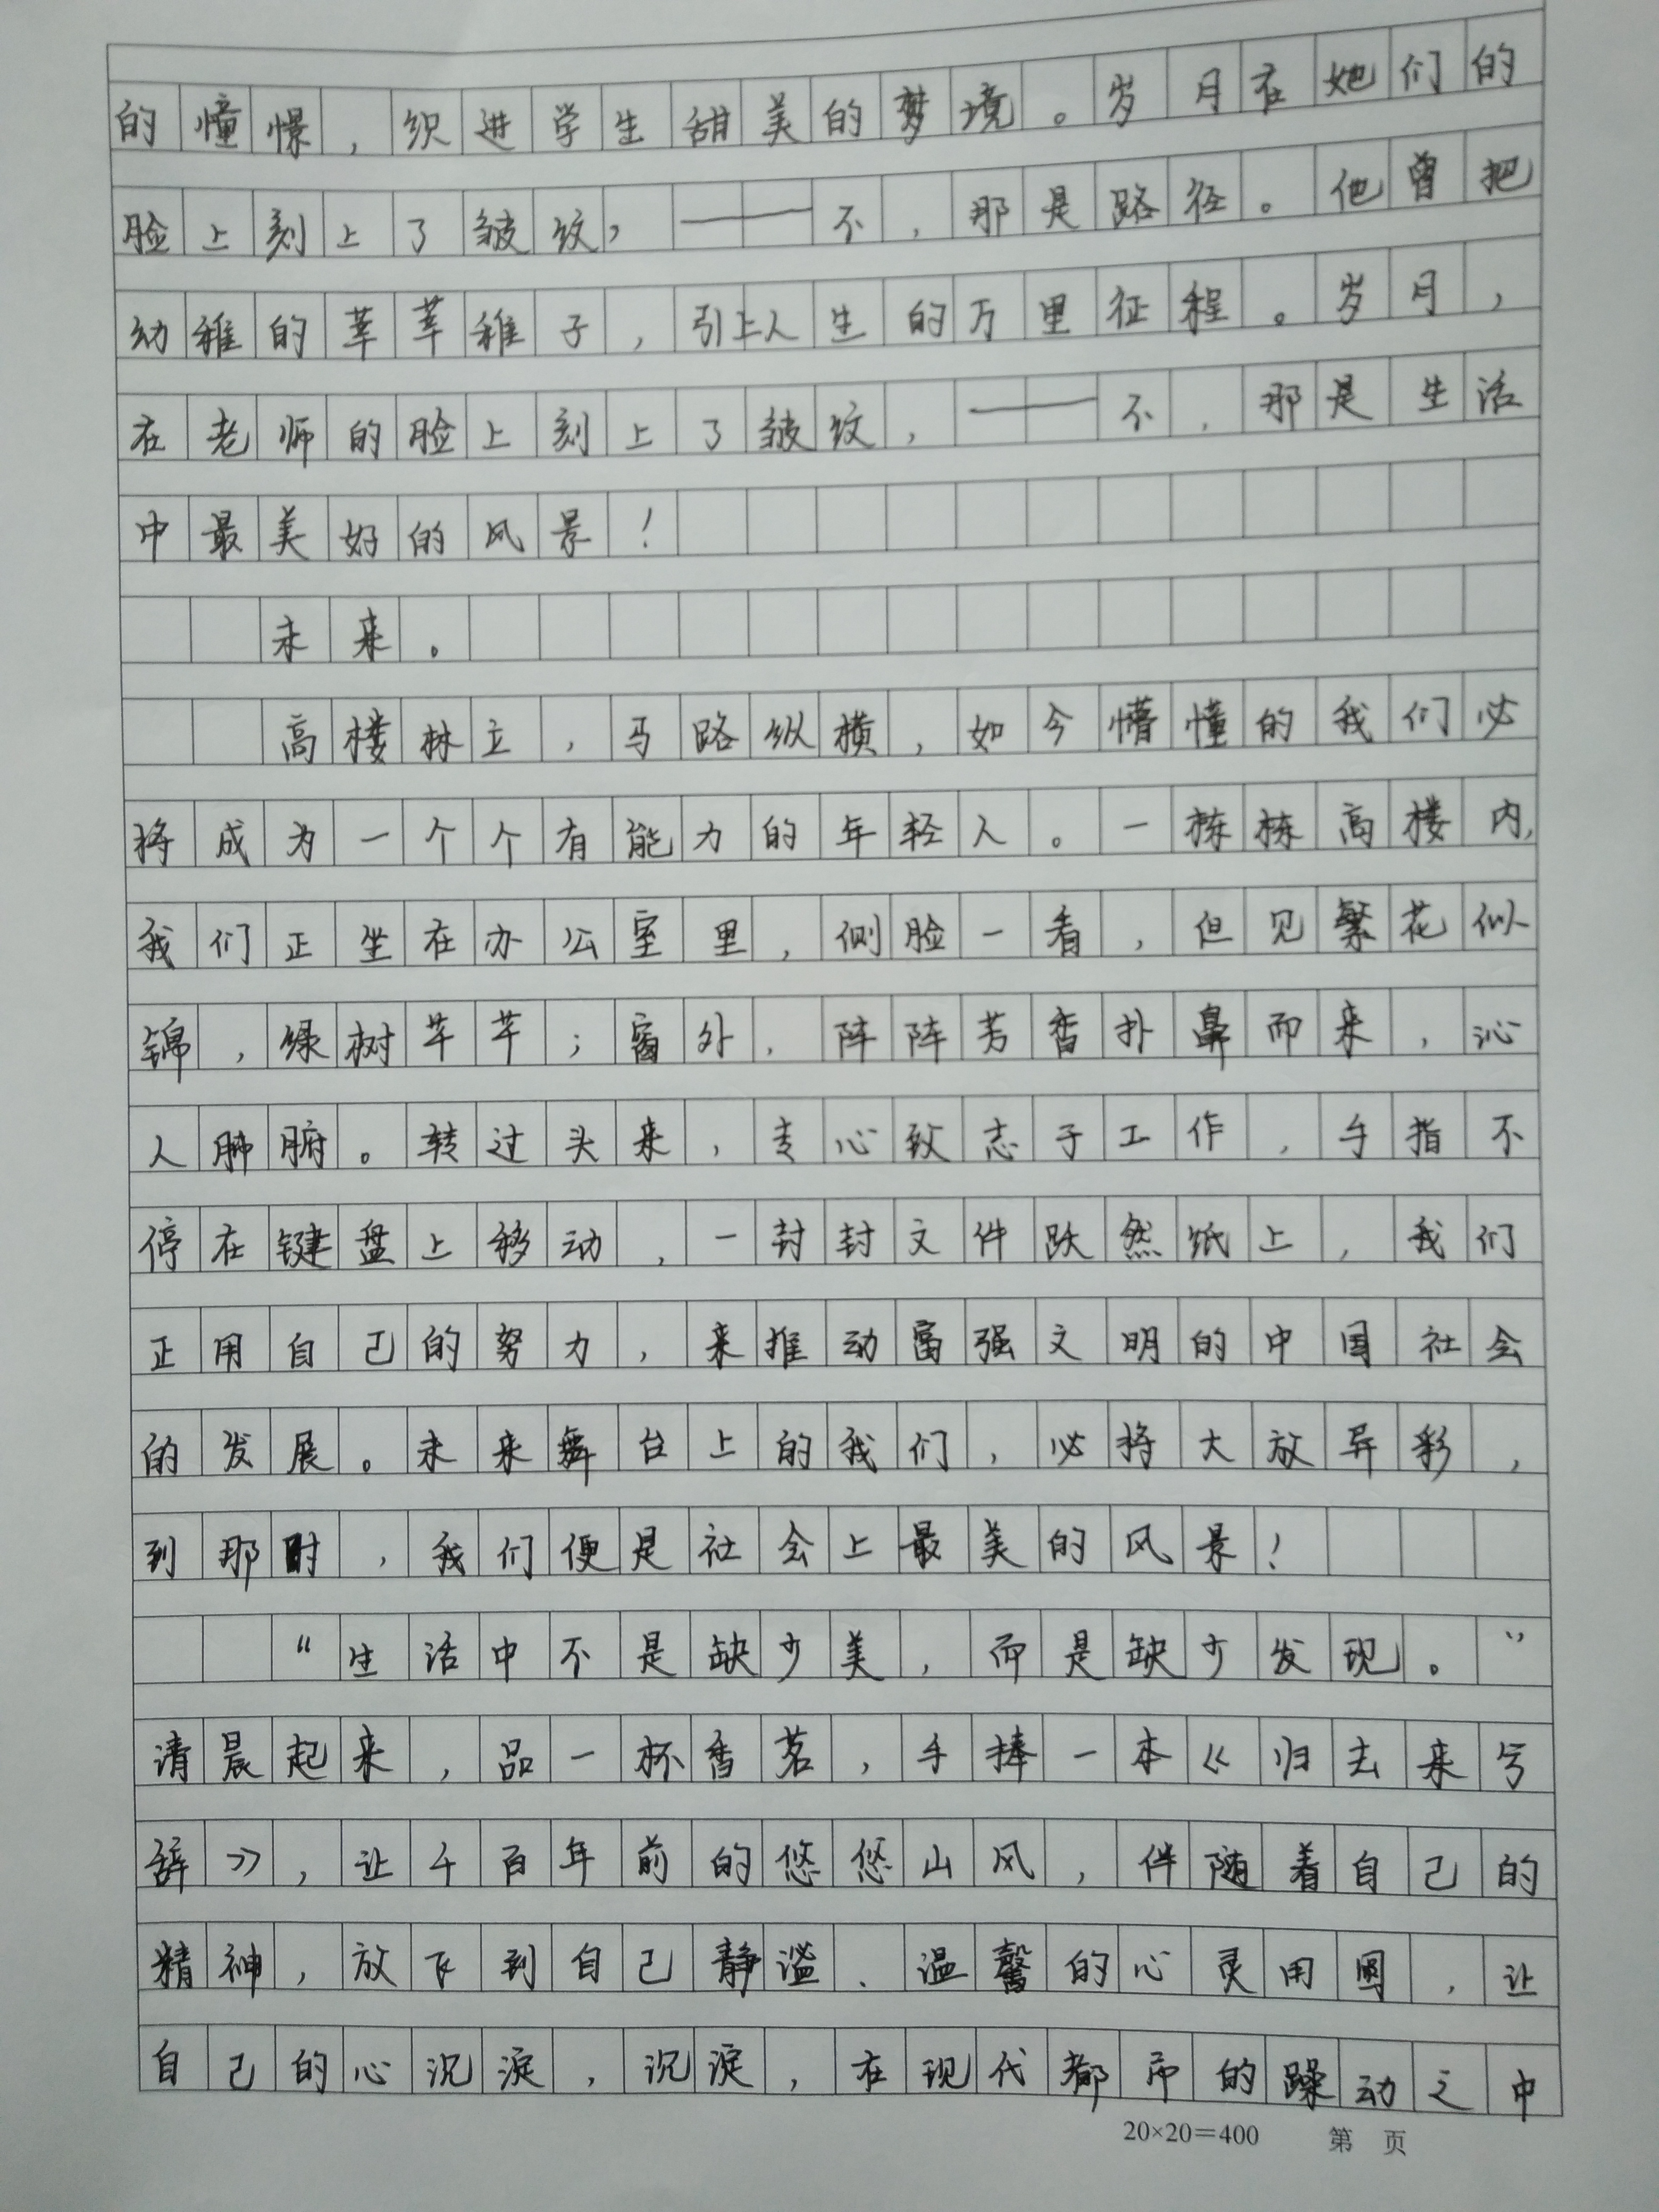 的憧憬，织进学生甜美的梦境。岁月在她们的
脸上刻上了皱纹，——不，那是路径。他曾把
幼稚的莘莘稚子，引上人生的万里征程。岁月，
在老师的脸上刻上了皱纹，——不，那是生活
中最美好的风景！
未来。
高楼林立，马路纵横，如今懵懂的我们必
将成为一个个有能力的年轻人。一栋栋高楼内，
我们正坐在办公室里，侧脸一看，但见繁花似
锦，绿树芊芊；窗外，阵阵芳香扑鼻而来，沁
人肺腑。转过头来，专心致志于工作，手指不
停在键盘上移动，一封封文件跃然纸上，我们
正用自己的努力，来推动富强文明的中国社会
的发展。未来舞台上的我们，必将大放异彩，
到那时，我们便是社会上最美的风景！
“生活中不是缺少美，而是缺少发现。”
清晨起来，品一杯香茗，手捧一本《归去来兮
辞》，让千百年前的悠悠山风，伴随着自己的
精神，放飞到自己静谧、温馨的心灵用圆，让
自己的心沉淀，沉淀，在现代都市的躁动之中
20×20=400 第 页